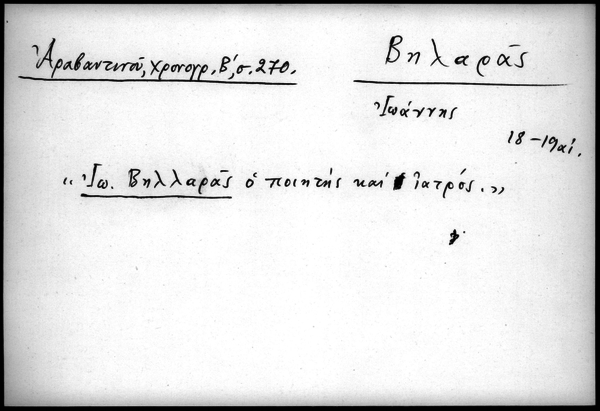 Ἀραβαντινοῦ, Χρονογρ. Β΄, σ. 270.
Βηλαρᾶς
Ἰωάννης
18-19 αἰ.
"Ἰω. Βηλλαρᾶς ὁ ποιητής καί ἰατρός."